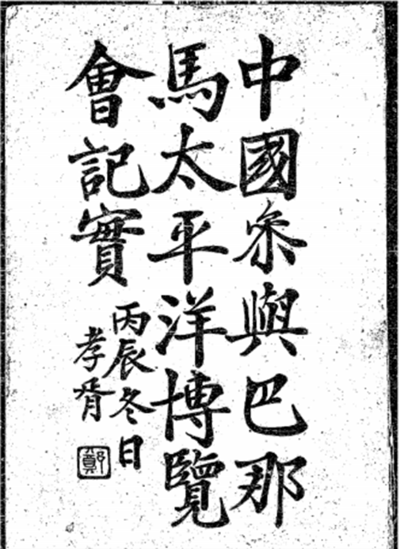 中國參與巴那
馬太平洋博覽
會記實
丙辰冬日
孝胥
鄭